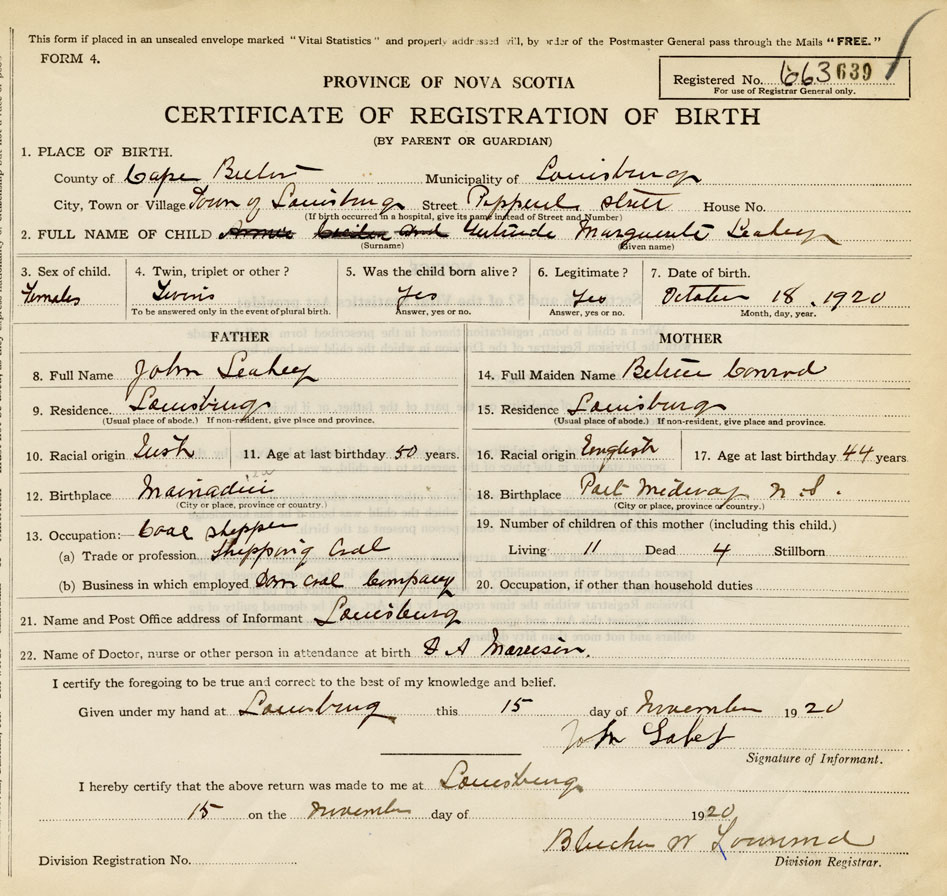 This form if placed in an unsealed envelope marked "Vital Statistics" and properly addressed will, by order of the Postmaster General pass through the Mails "FREE."
FORM 4.
Registered No. 663639
For use of Registrar General only.
PROVINCE OF NOVA SCOTIA
CERTIFICATE OF REGISTRATION OF BIRTH
(BY PARENT OR GUARDIAN)
1. PLACE OF BIRTH.
County of Cape Breton Municipality of Louisburg
City, Town or Village Town of Louisburg Street Pepperel Street House No.
(If birth occurred in a hospital, give its name instead of Street and Number)
2. FULL NAME OF CHILD Gertrude Marguerite Leahey
(Surname) (Given name)
3. Sex of child. 4. Twin, triplet or other? 5. Was the child born alive? 6. Legitimate? 7. Date of birth.
Females Twins Yes Yes October 18. 1920
To be answered only in the event of plural birth. Answer, yes or no. Answer, yes or no. Month, day, year.
FATHER MOTHER
8. Full Name John Leahey 14. Full Maiden Name Conrod
9. Residence. Louisburg 15. Residence Louisburg
(Usual place of abode.) If non-resident, give place and province. (Usual place of abode.) If non-resident, give place and province.
10. Racial origin Irish 11. Age at last birthday 50 years. 16. Racial origin English 17. Age at last birthday 44 years.
12. Birthplace Mainadieu 18. Birthplace Port Medway N.S.
(City or place, province or country.) (City or place, province or country.)
13. Occupation:— Coal shipper 19. Number of children of this mother (including this child.)
(a) Trade or profession Shipping Coal Living 11 Dead 4 Stillborn
(b) Business in which employed Dom Coal Company 20. Occupation, if other than household duties
21. Name and Post Office address of Informant Louisburg
22. Name of Doctor, nurse or other person in attendance at birth A Morrison.
I certify the foregoing to be true and correct to the best of my knowledge and belief.
Given under my hand at Louisburg this 15 day of November 1920
John
Signature of Informant.
I hereby certify that the above return was made to me at Louisburg
15 on the November day of 1920
W Townsend
Division Registration No. Division Registrar.